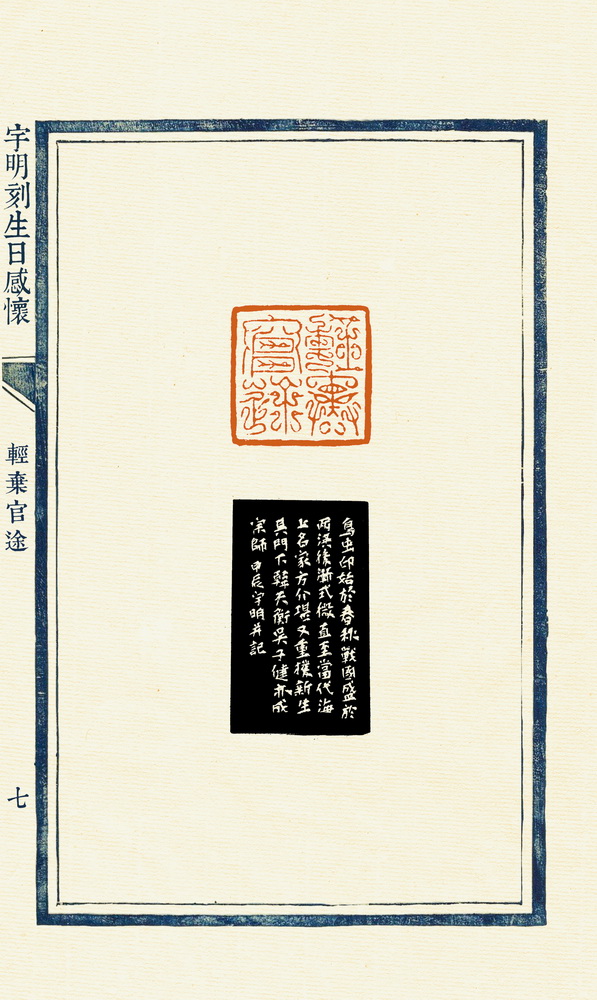 宇明刻生日感懷
輕棄官途
七
輕棄官途
鳥虫印始於春秋戰國盛於
西漢後漸式微直至當代海
上名家方介堪又重獲新生
其門下韓天衡吳子健亦成
宗師 甲辰宇明并記